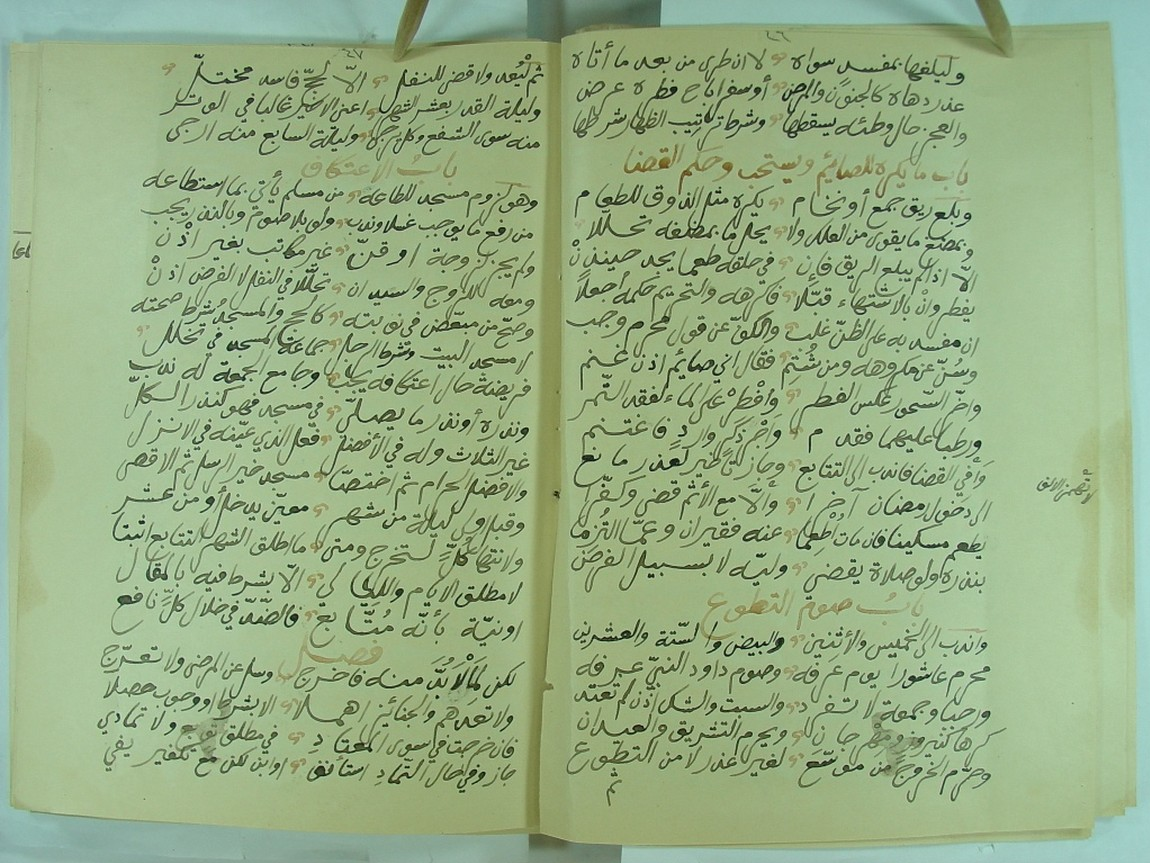 ٤٦
وليلغها بمفسد سواه لا ان طرى من بعد ما أتاه
عذر دهاه كالجنون والمرض أو سفر اباح فطره عرض
والعجز حال وطئه يسقطها وشرط ترتيب الظهار شرطها
باب ما يكره للصايم ويستحب وحكم القضا
وبلع ريق جمع أو نخام يكره مثل الذوق للطعام
ومضغ ما يقوى من العلك ولا يحل ما بمضغه تحللا
الا اذا لم يبلع الريق فإن في حلقه طعما يجد حينئذن
يفطر وان بالاشتهاء قبلا فاكرهه والتحريم حكمه أجعلا
ان مفسد به على الظن غلب والكف عن قول محرم وجب
وسن عن مكروهه ومن شتم فقال اني صايم اذن غنم
واخر السحور عكس الفطر وأفطر على الماء لفقد التمر
ورطبا عليهما فقدم واجر ذكر وارد فاغتنم
وأفي القضا فاندب الى التتابع وجاز تأخير لعذر مانع
الى دخول رمضان آخرا وألا مع الأثم قضى وكفرا
يطعم مسكينا فان مات أطعما عنه فقيران وعما التزما
بنذره ولو صلاة يقضي وليه لا بسبيل الفرض
باب صوم التطوع
واندب الى الخميس والأثنين والبيض والستة والعشرين
محرم عاشورا يوم عرفه وصوم داود النبي عرفه
ورجبا وجمعة لا تفرد والسبت والشك اذن لم تعتد
كرها كنيروز ومهرجان ويحرم التشريق والعيدان
وحرم الخروج من موسع لغير عذر لا من التطوع
ثم
٤٧
ثم ليعد ولا قضى للنفل الا لحج فاسد مختل
وليلة القدر بعشر الشهر اعنى الاخير غالبا في الوتر
منه سوى الشفع وكل يرجى وليلة السابع منه ارجى
باب الاعتكاف
وهو لزوم مسجد للطاعه من مسلم يأتي بما استطاعه
من رفع ما يوجب غسلا وندب ولو بلا صوم وبالنذر يجب
ولم يجز لزوجة او قن غير مكاتب بغير اذن
ومعه للزوج والسيد ان تحللا في النفل لا الفرض اذن
وصح من مبعض في نوبته كالحج والمسجد شرط صحته
لا مسجد البيت وشرط الرجل جماعة المسجد في تخلل
فريضة حال اعتكافه يجب وجامع الجمعة له ندب
ونذره أو نذر ما يصلي في مسجد فهو كنذر الكل
غير الثلاث وله في الأفضل فعل الذي عينه في الانزل
والافضل الحرام ثم اختصا مسجد خير الرسل ثم الاقصى
وقبل اولى ليلة من شهر معين يدخل أو من عشر
ولانتهاء كل لتخرج ومتى ما اطلق الشهر التتابع اثبتا
لا مطلق الايام والليالي الا بشرط فيه بالمقال
او نية بأنه متابع فالضد في خلال كل نافع
فصل
لكن لما لا بد منه فاخرج وسل عن المرضى ولا تعرج
ولا تعدهم والجنائز اهملا الا بشرط او وجوب حصلا
فان خرجت في سوى المعتاد في مطلق ولا تمادي
جاز وفي حال التماد استأنف او ابن لكن مع تكفير يفي